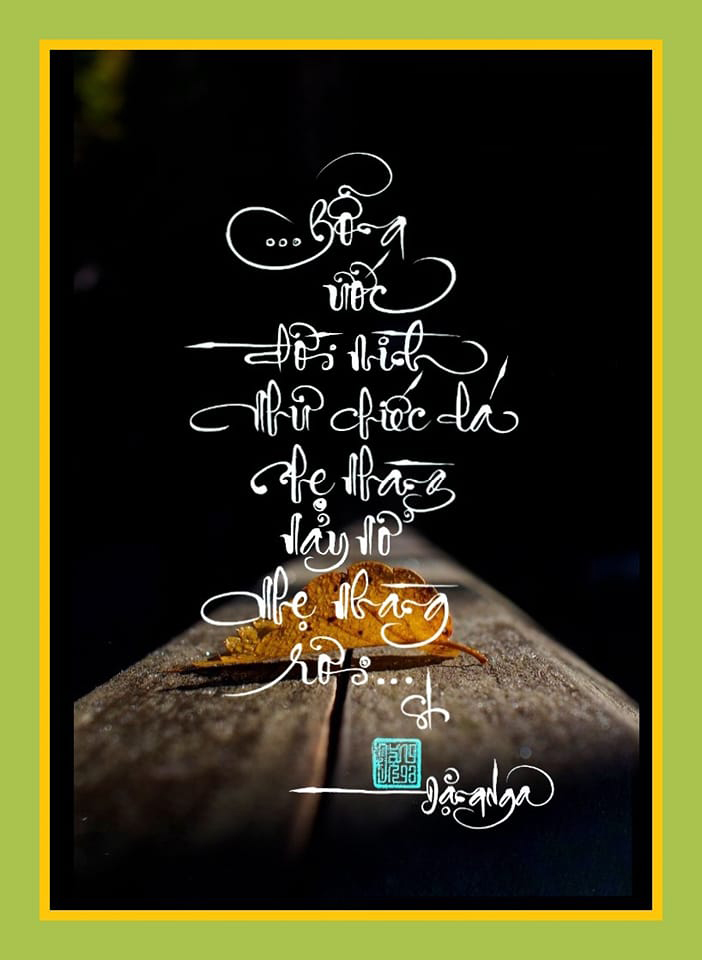 ...Bỗng
ước
đời mình
như chiếc lá
nhẹ nhàng
nảy nở
nhẹ nhàng
rơi...
st
Đặng Nga